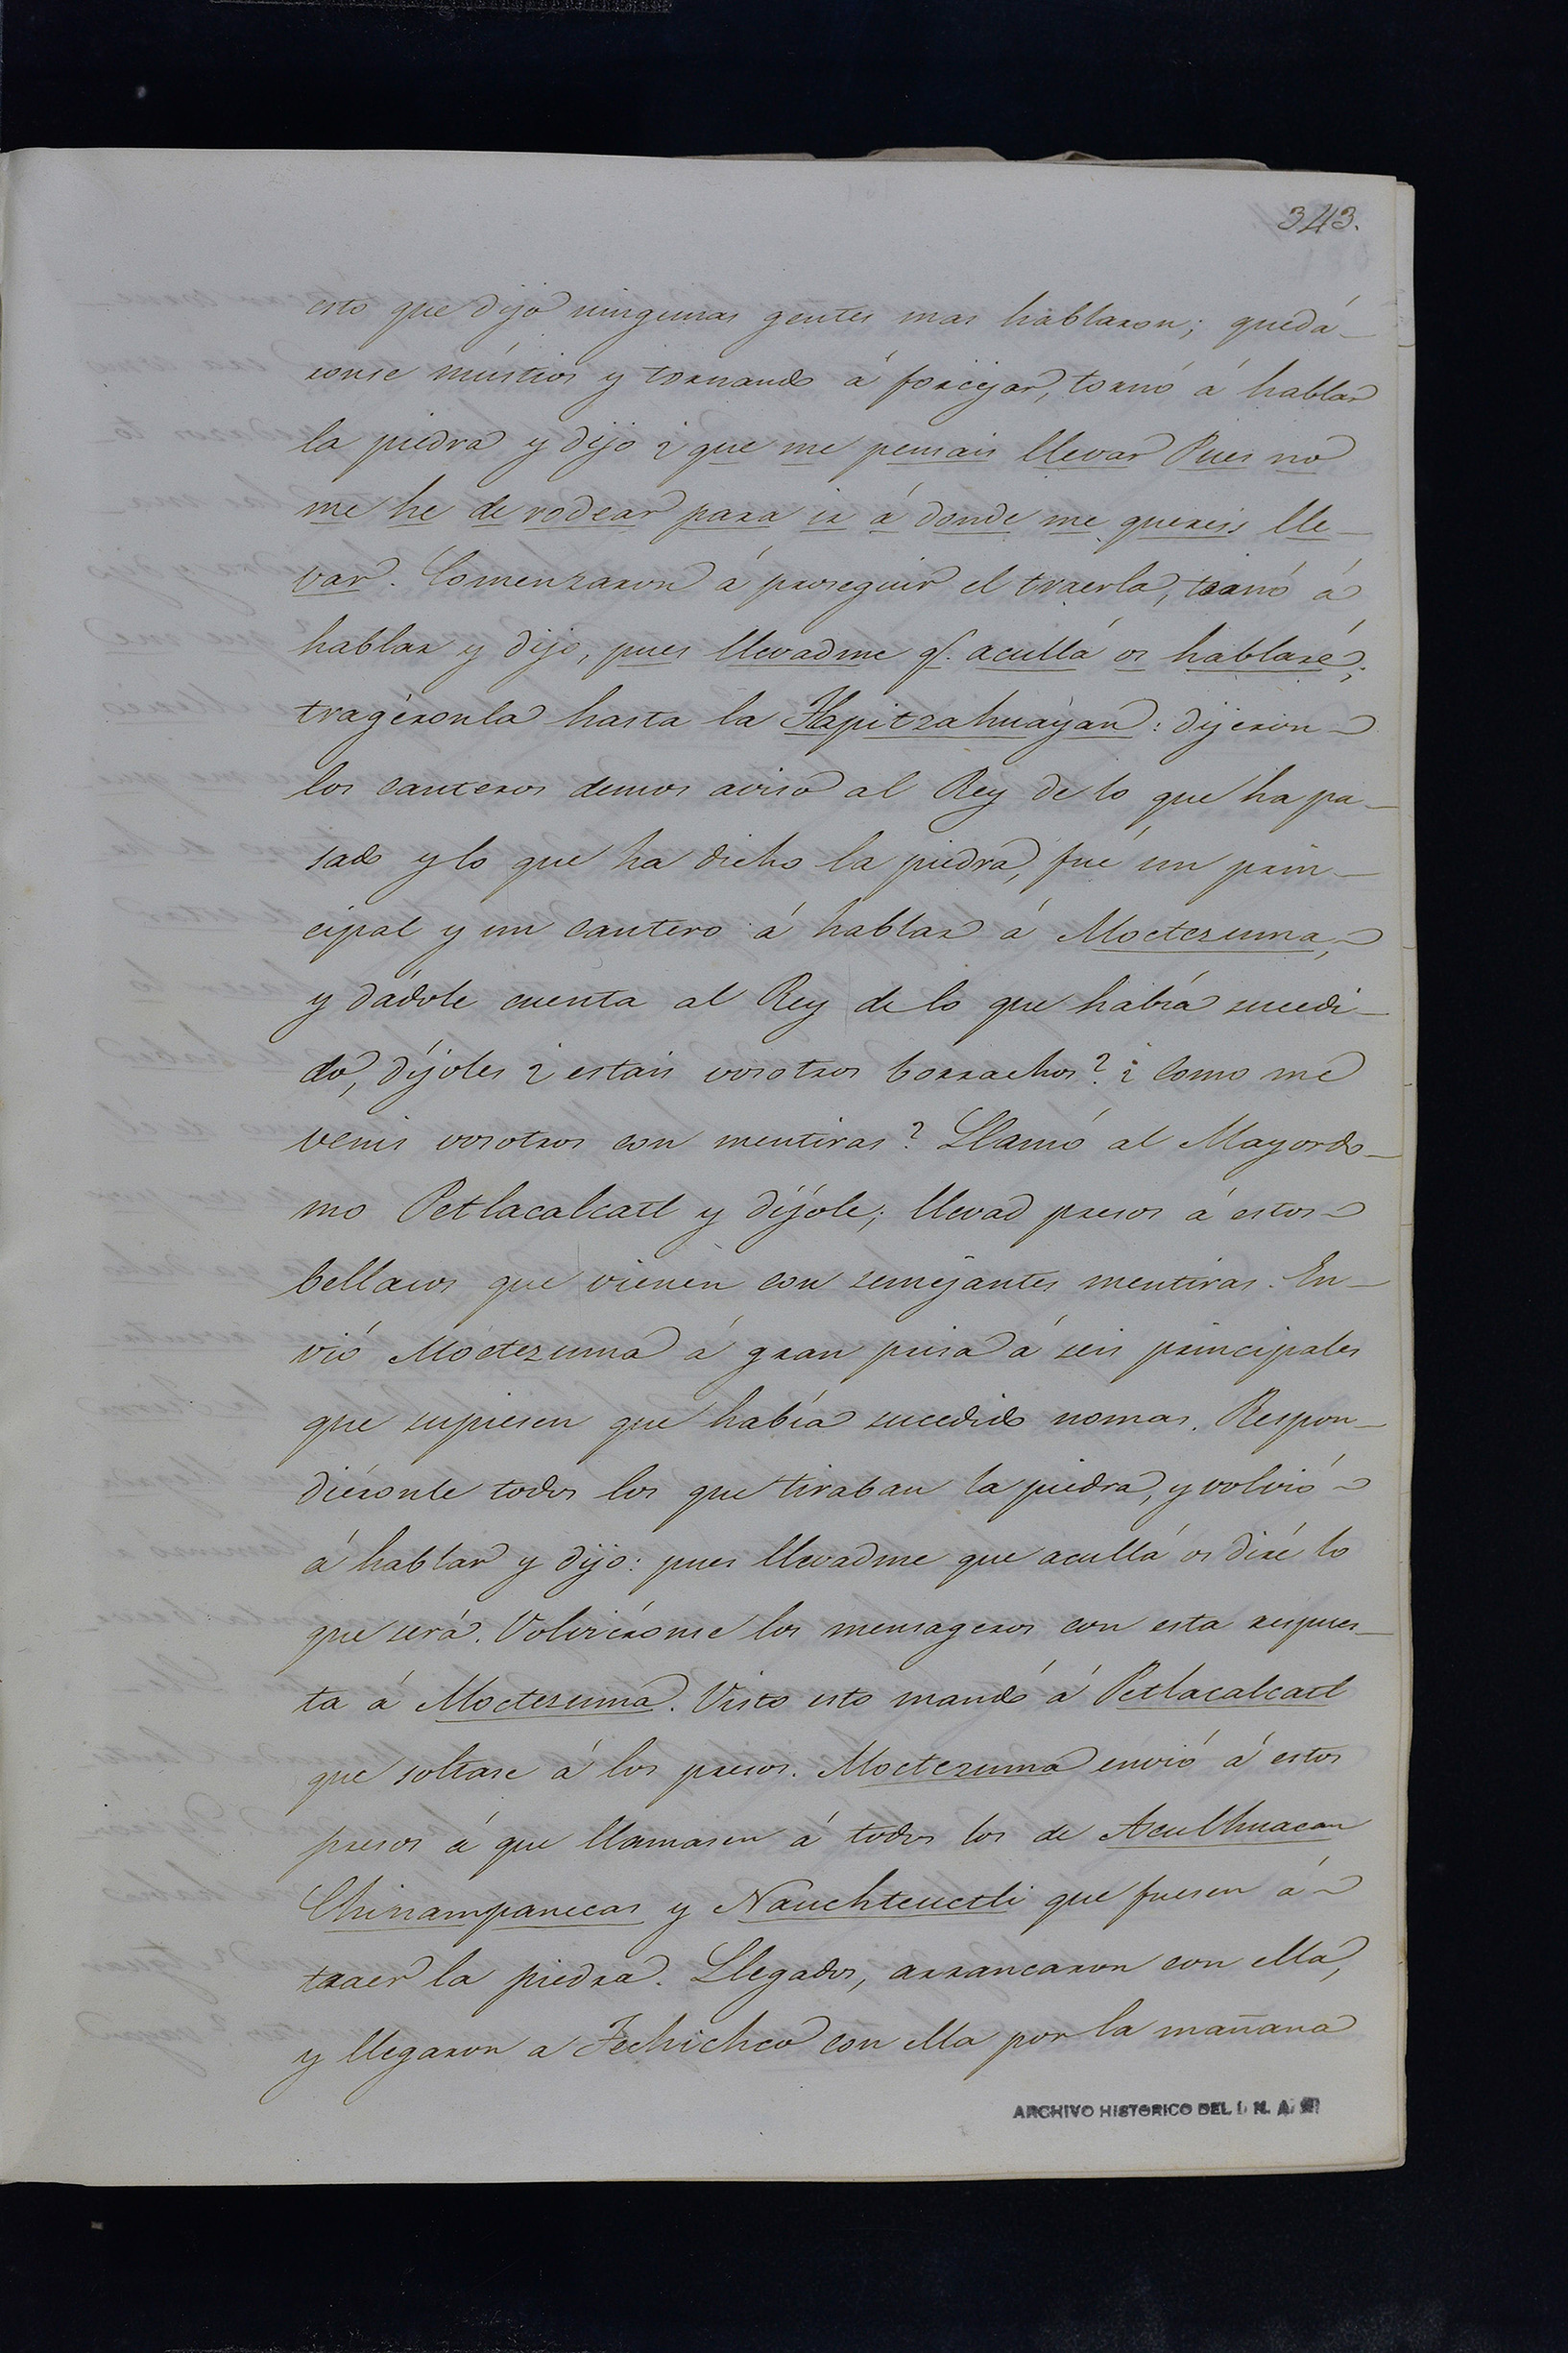 343.
esto que dijo ningunas gentes mas hablaron; quedá-
ronse mústios y tornando á forcejar, tornó á hablar
la piedra y dijo ¿que me pensais llevar Pues no
me he de rodear para ir á donde me quereis lle-
var. Comenzaron á proseguir el traerla, tornó á
hablar y dijo, pues llevadme q. acullá os hablaré;
tragéronla hasta la Tlapitzahuayan: dijeron
los canteros demos aviso al Rey de lo que ha pa-
sado y lo que ha dicho la piedra, fué un prin-
cipal y un cantero á hablar á Moctezuma,
y dádole cuenta al Rey de lo que había sucedi-
do, díjoles ¿estais vosotros borrachos? ¿como me
venis vosotros con mentiras? Llamó al Mayordo-
mo Petlacalcatl y díjole; llevad presos á estos
bellacos que vienen con semejantes mentiras. En-
vió Moctezuma á gran prisa á seis principales
que supiesen que había sucedido nomas. Respon-
diéronle todos los que tiraban la piedra, y volvió
á hablar y dijo: pues llevadme que acullá os diré lo
que será. Volviéronse los mensageros con esta respues-
ta á Moctezuma. Visto esto mandó á Petlacalcatl
que soltase á los presos. Moctezuma envió á estos
presos á que llamasen á todos los de Aculhuacan
Chinampanecas y Nauchteuctli que fuesen á
traer la piedra. Llegados, arrancaron con ella,
y llegaron a Techichco con ella por la mañana
ARCHIVO HISTORICO DEL I. N. A. H.